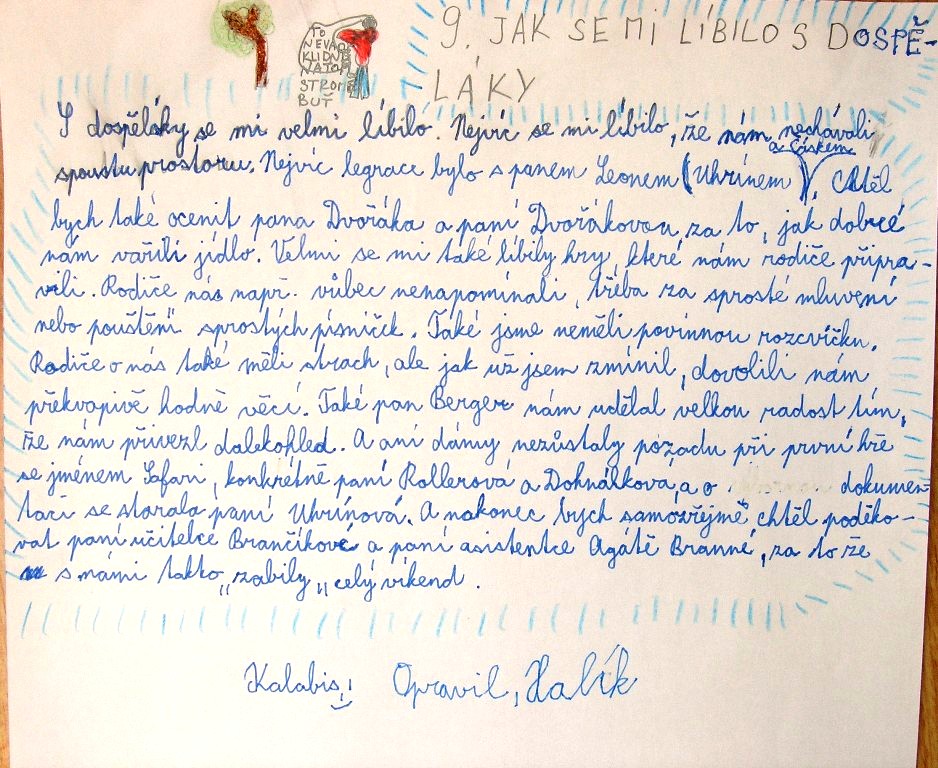 9. JAK SE MI LÍBILO S DOSPĚ-
LÁKY
TO
NEVADÍ
KLIDNĚ
NA TOM
STROMĚ
BUĎ
S dospěláky se mi velmi líbilo. Nejvíc se mi líbilo, že nám nechávali
spoustu prostoru. Nejvíc legrace bylo s panem Leonem (Uhrínem a Čáskem). Chtěl
bych také ocenit pana Dvořáka a paní Dvořákovou za to, jak dobré
nám vařili jídlo. Velmi se mi také líbily hry, které nám rodiče připra-
vili. Rodiče nás např. vůbec nenapomínali, třeba za sprosté mluvení
nebo pouštění sprostých písniček. Také jsme neměli povinnou rozcvičku.
Rodiče o nás také měli strach, ale jak už jsem zmínil, dovolili nám
překvapivě hodně věcí. Také pan Berger nám udělal velkou radost tím,
že nám přivezl dalekohled. A ani dámy nezůstaly pozadu při první hře
se jménem Safari, konkrétně paní Rollerová a Dohnálková, a o dokumen-
taci se starala paní Uhrínová. A nakonec bych samozřejmě chtěl poděko-
vat paní učitelce Brančíkove a paní asistentce Agátě Branné, za to že
s námi takto „zabily„ celý víkend.
Kalabis, Opravil, Halík